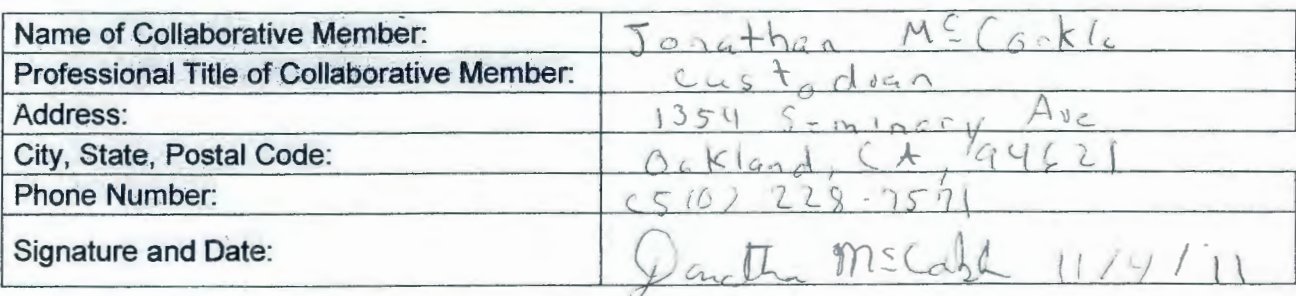 Name of Collaborative Member: Jonathan
Professional Title of Collaborative Member: custodian
Address: 1354 Seminary Ave
City, State, Postal Code: Oakland, CA, 94621
Phone Number: (510) 228-7571
Signature and Date: 11/4/11